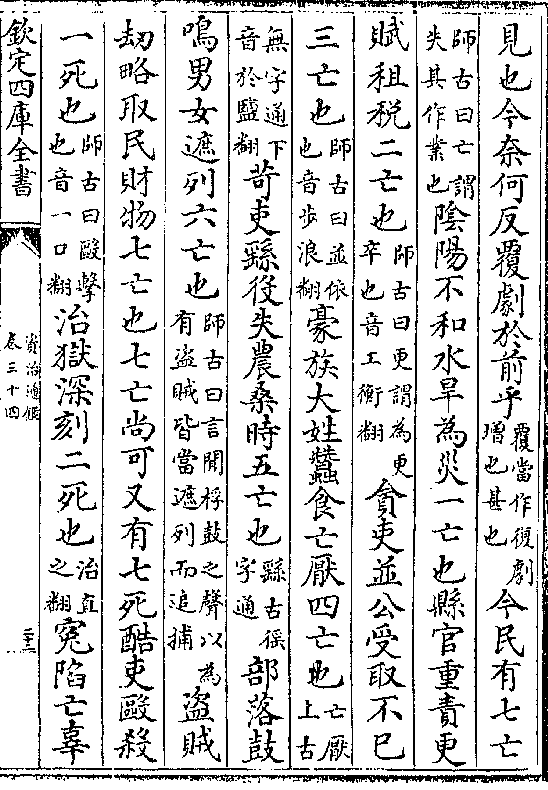 見也今奈何反覆劇於前乎覆當作復劇增也甚也今民有七亡
師古曰亡謂失其作業也陰陽不和水旱為災一亡也縣官重責更
賦租稅二亡也師古曰更謂為更卒也音工衡翻貪吏並公受取不已
三亡也師古曰並依也音步浪翻豪族大姓蠶食亡厭四亡也亡厭上古
無字通下音於鹽翻苛吏繇役失農桑時五亡也繇古徭字通部落鼓
鳴男女遮列六亡也師古曰言聞桴鼓之聲以為有盜賊皆當遮列而追捕盜賊
劫略取民財物七亡也七亡尚可又有七死酷吏毆殺
一死也師古曰毆擊也音一口翻治獄深刻二死也治直之翻冤陷亡辜
欽定四庫全書
資治通鑑
卷三十四
二十三